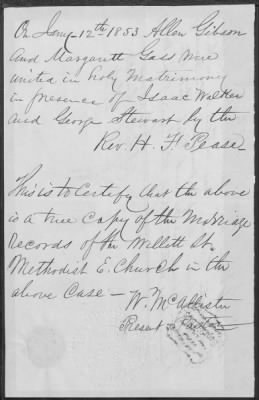 On Jany 12th 1853 Allen Gibson
And Margarett Gass were
united in holy Matrimony
in presence of Isaac Walker
and George Stewart by the
Rev. H. F. Pease
This is to Certify that the above
is a true Copy of the Marriage
Records of the Willett St.
Methodist E. Church in the
above Case — W. McAllister
Present Pastor